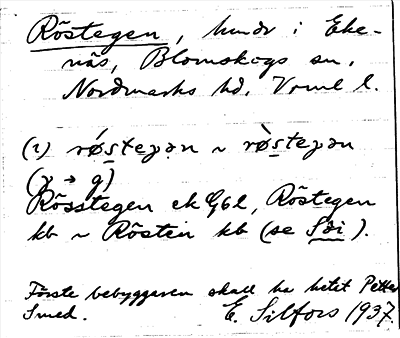 Röstegen, hmdr i Eke-
näs, Blomskogs sn,
Nordmarks hd, Vrml l.
(i) røstegən ~ røstegən
(γ → g)
Rösstegen ek Gbl, Röstegen
kb ~ Rösten kb (se Sdi).
Förste bebyggaren skall ha hetat Petter
Smed. E. Silfors 1937.